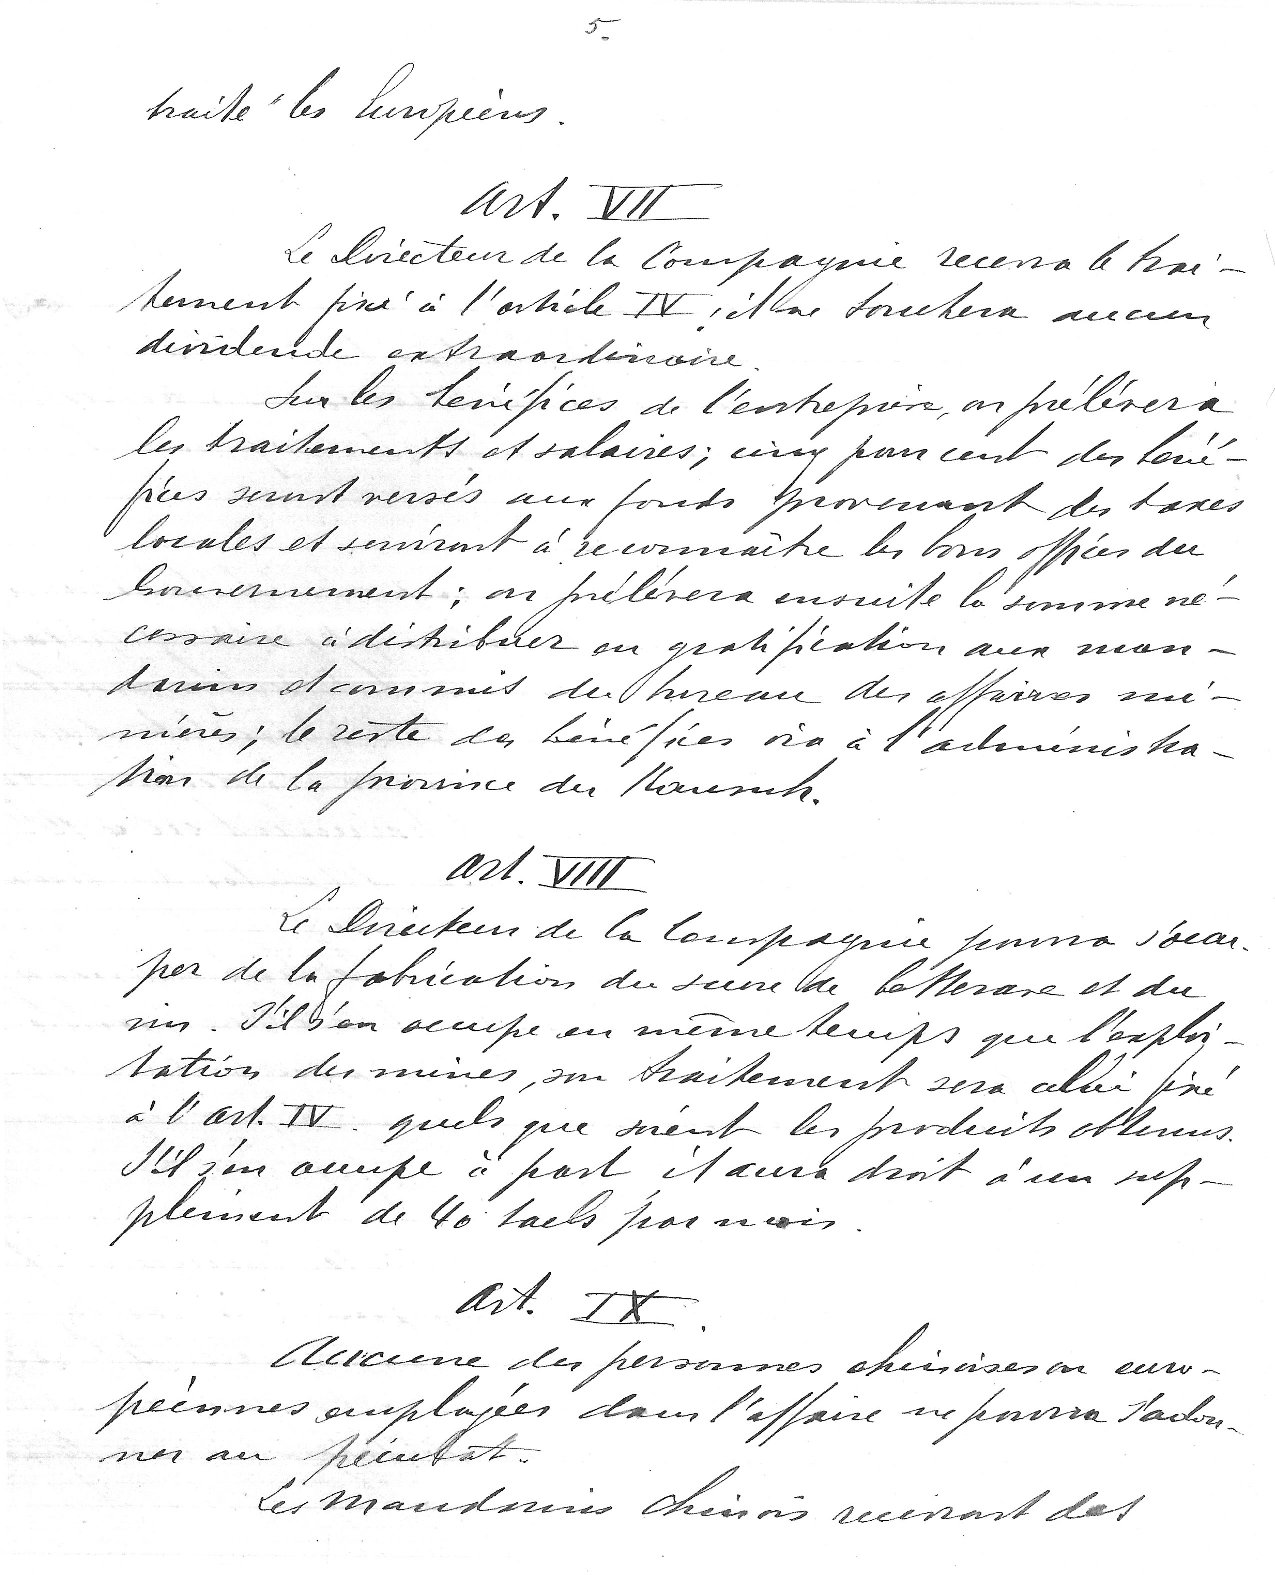 5.
traité les Européens.
Art. VII
Le Directeur de la Compagnie recevra le trai-
tement fixé à l'article IV, il ne touchera aucun
dividende extraordinaire.
Sur les bénéfices de l'entreprise, on prélévera
les traitements et salaires; cinq pour cent des béné-
fices seront versés aux fonds provenant des taxes
locales et serviront à reconnaître les bons offices du
Gouvernement; on prélévera ensuite la somme né-
cessaire à distribuer en gratification aux man-
darins et commis du bureau des affaires mi-
nières; le reste des bénéfices ira à l'administra-
tion de la province du Kansuh.
Art. VIIII
Le Directeur de la Compagnie pourra s'occu-
per de la fabrication du sucre de betterave et du
vin. S'il s'en occupe en même temps que l'exploi-
tation des mines, son traitement sera celui fixé
à l'art. IV. quels que soient les produits obtenus.
S'il s'en occupe à part il aura droit à un sup-
plément de 40 taels par mois.
Art. IX.
Aucune des personnes chinoises ou euro-
péennes employées dans l'affaire ne pourra s'adon-
ner au
Les Mandarins Chinois recevront des